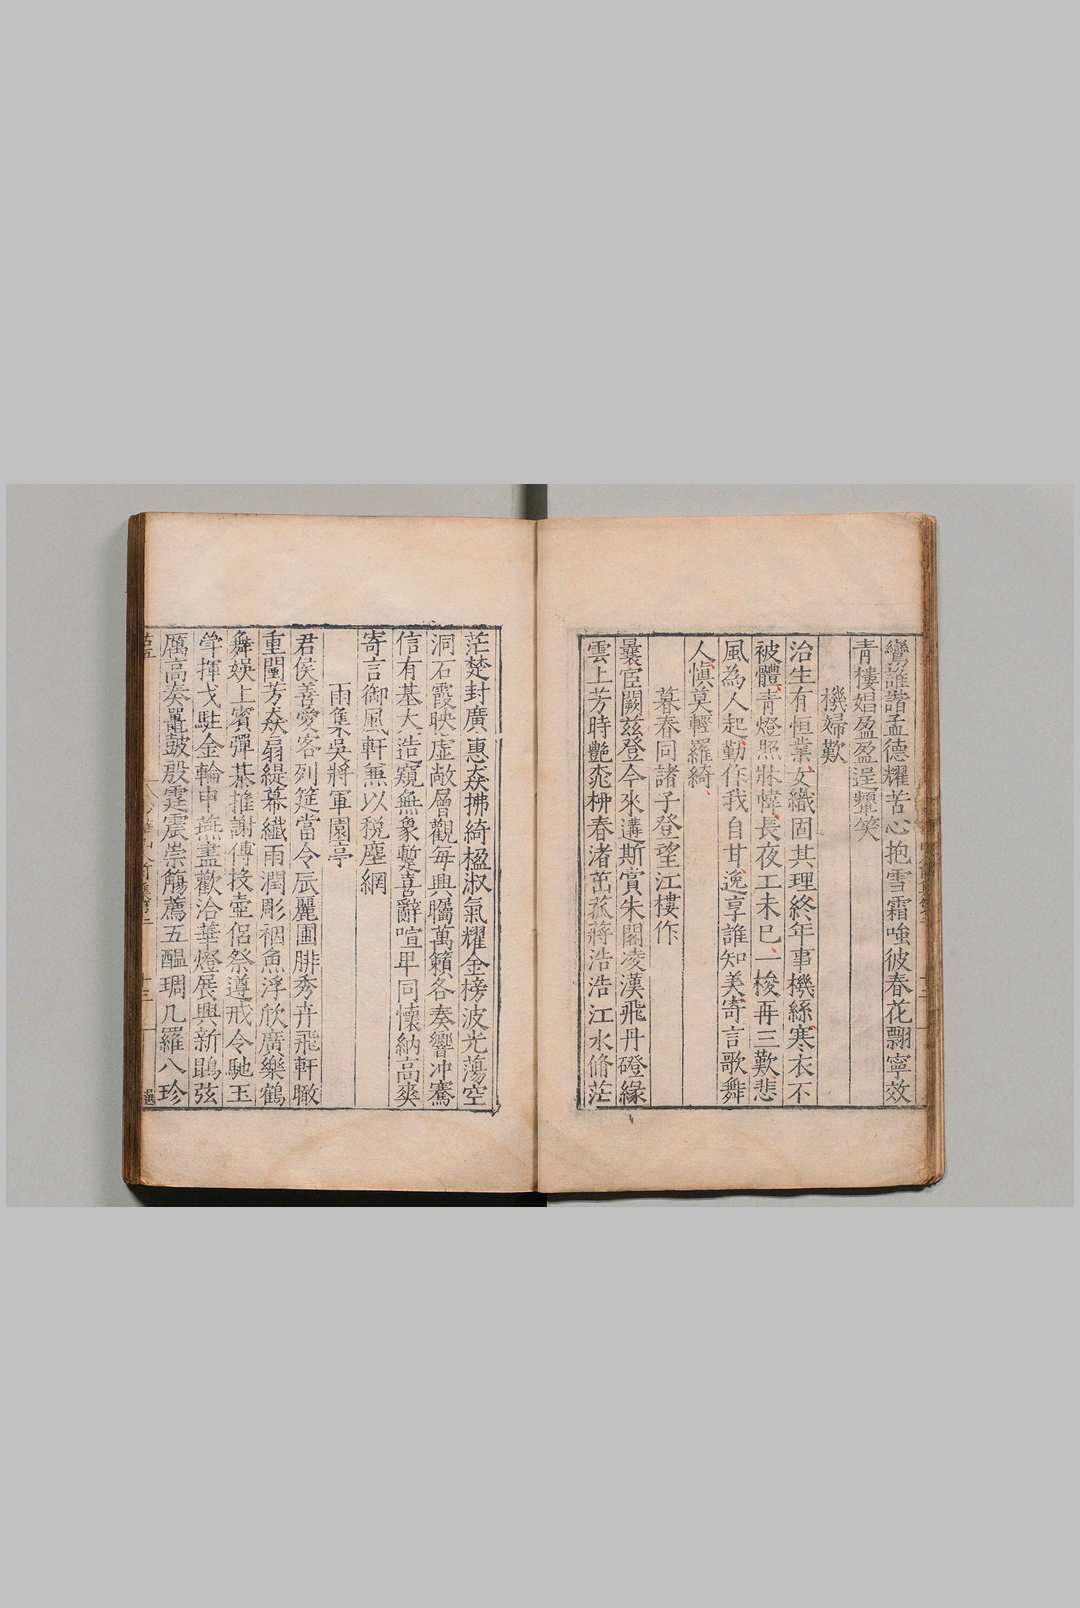 鸞誰諧孟德耀苦心抱雪霜嗤彼春花飄寧效
青樓娼盈盈逞顰笑
機婦歎
治生有恒業女織固其理終年事機絲寒衣不
被體青燈照牀幃長夜工未已一梭再三歎悲
風為人起勤作我自甘逸享誰知美寄言歌舞
人慎莫輕羅綺
暮春同諸子登望江樓作
曩宦闕茲登今來遘斯賞朱閣凌漢飛丹磴緣
雲上芳時艷桃柳春渚茁菰蔣浩浩江水脩茫
茫楚封廣惠猋拂綺楹淑氣耀金榜波光蕩空
洞石霞映虛敞層觀每興矚萬籟各奏響冲騫
信有基大造窺無象蹔喜辭喧卑同懷納高爽
寄言御風軒無以稅塵網
雨集吳將軍園亭
君侯善愛客列筵當令辰麗圃腓秀卉飛軒瞰
重闉芳猋扇緹幕纖雨潤彫裀魚浮欣廣樂鶴
舞娛上賓彈棊推謝傅投壺侶祭遵戒令馳玉
斝揮戈駐金輪申燕盡歡洽華燈展興新鵾弦
厲高奏鼉鼓殷霆震崇觴薦五醖琱几羅八珍